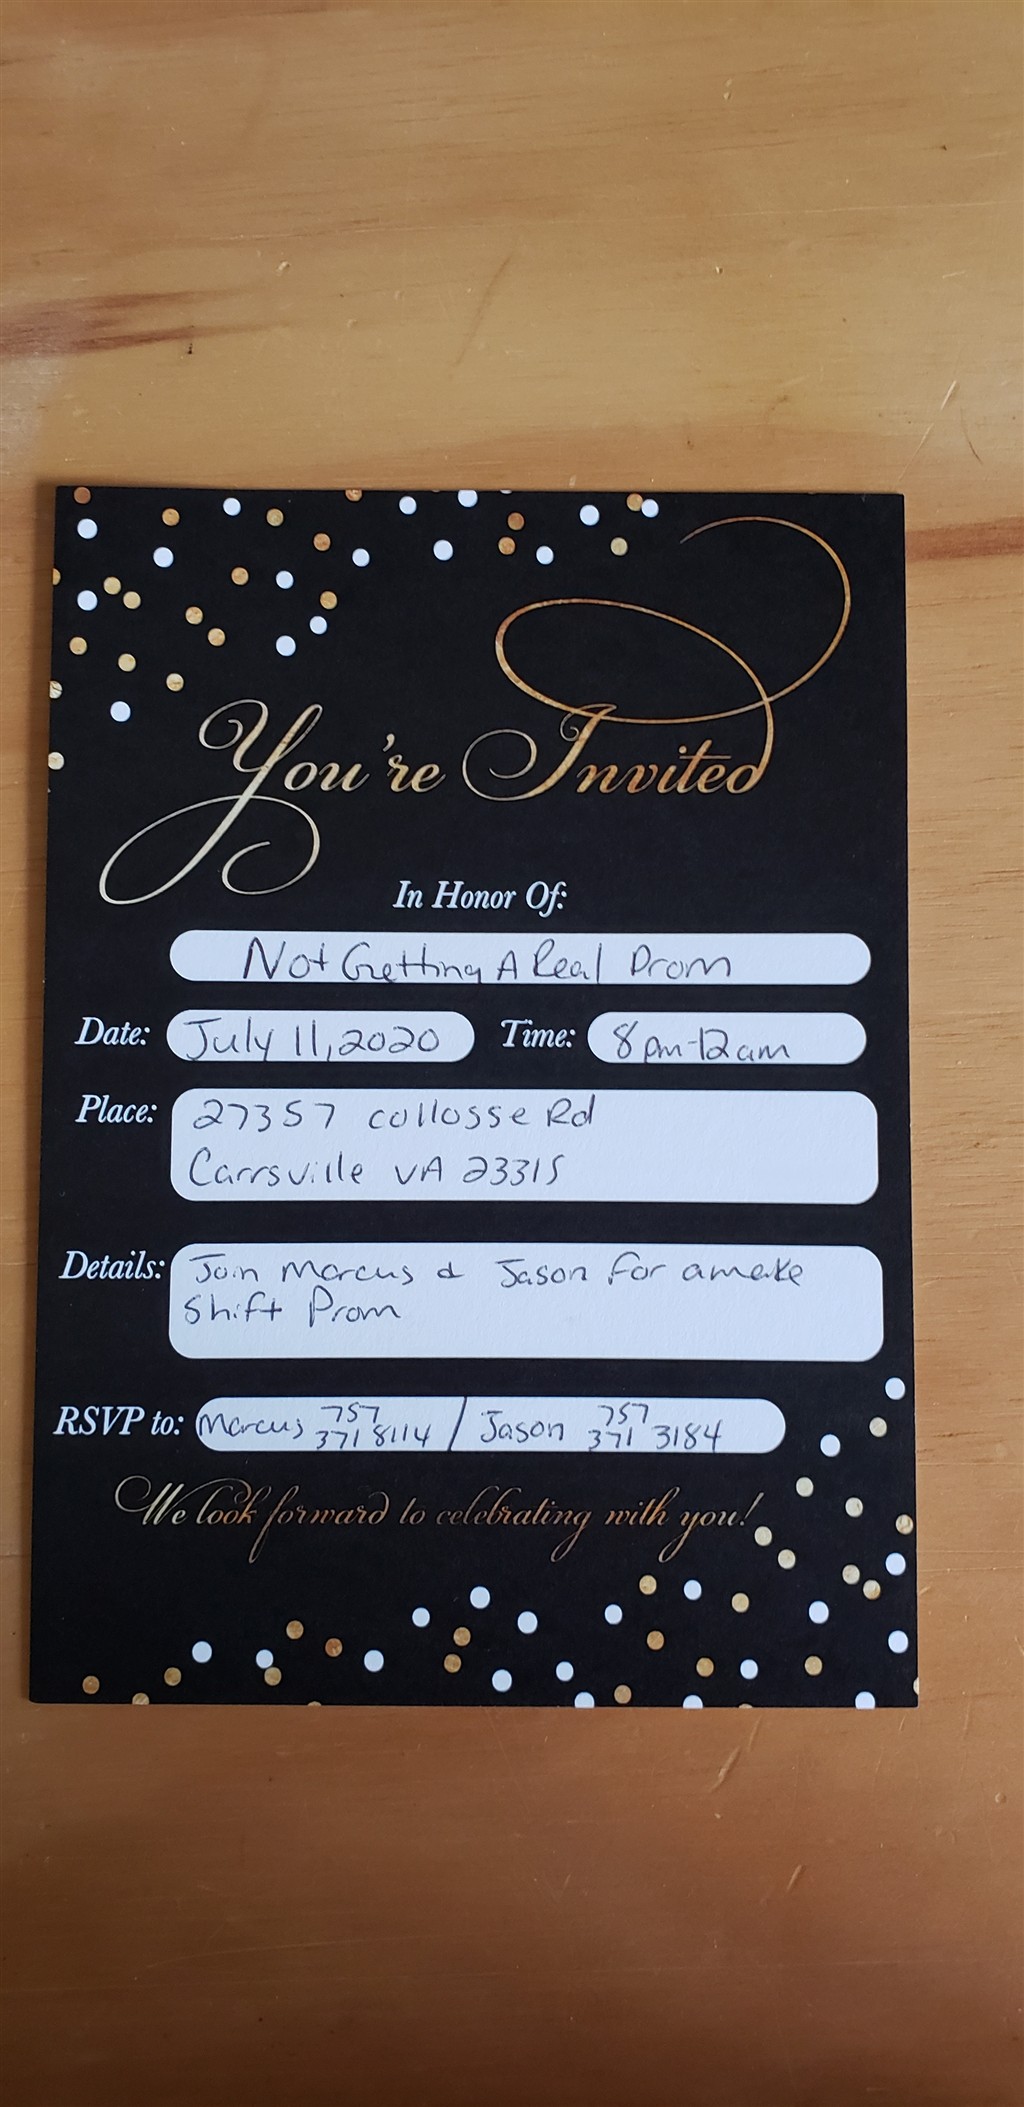 You're Invited
In Honor Of:
Not Getting A Real Prom
Date: July 11, 2020 Time: 8pm-12am
Place: 27357 Collosse Rd
Carrsville VA 23315
Details: Join Marcus & Jason for a make
shift Prom
RSVP to: Marcus 757 371 8114 / Jason 757 371 3184
We look forward to celebrating with you!